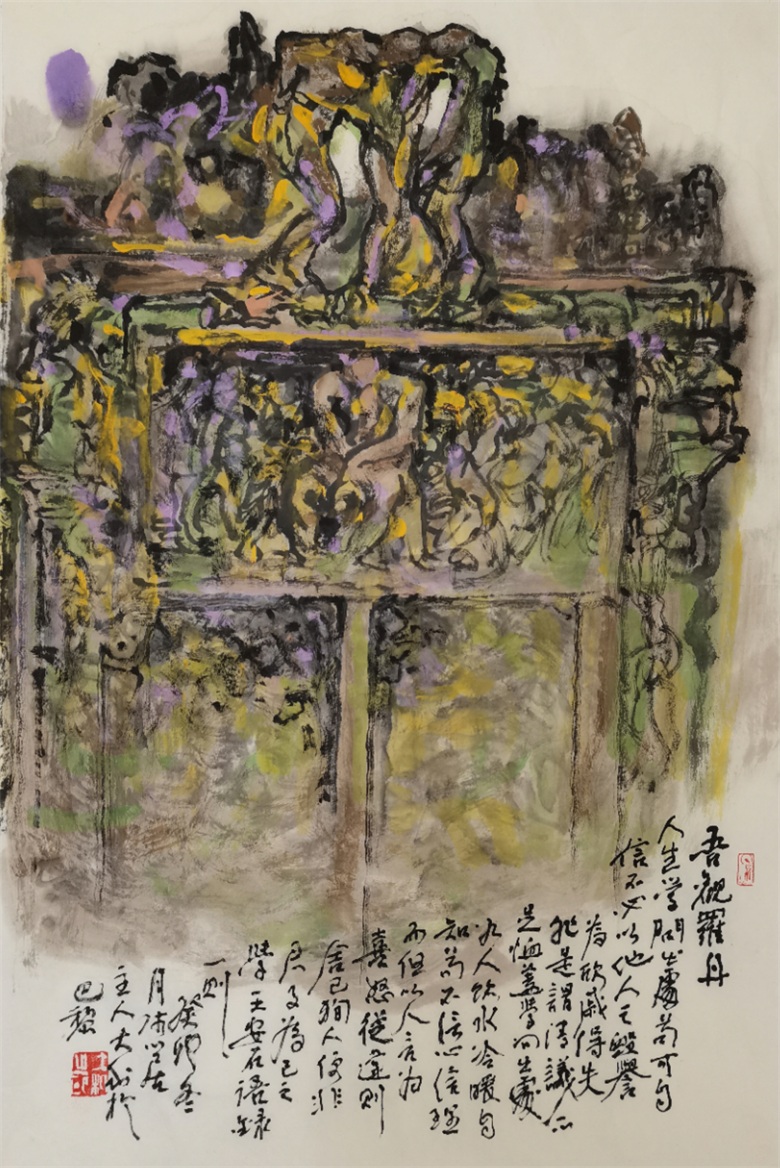 吾觀羅丹
人生学問出處苟可自
信不必以他人之毀譽
為欣戚得失
非是謂清議不
足恤蓋學问出處
如人飲水冷暖自
知苟不信心信理
而但以人言為
喜怒從違則
舍己狥人便非
君子為己之
學王安石語錄
一則
癸卯冬
月
主人大於
巴黎